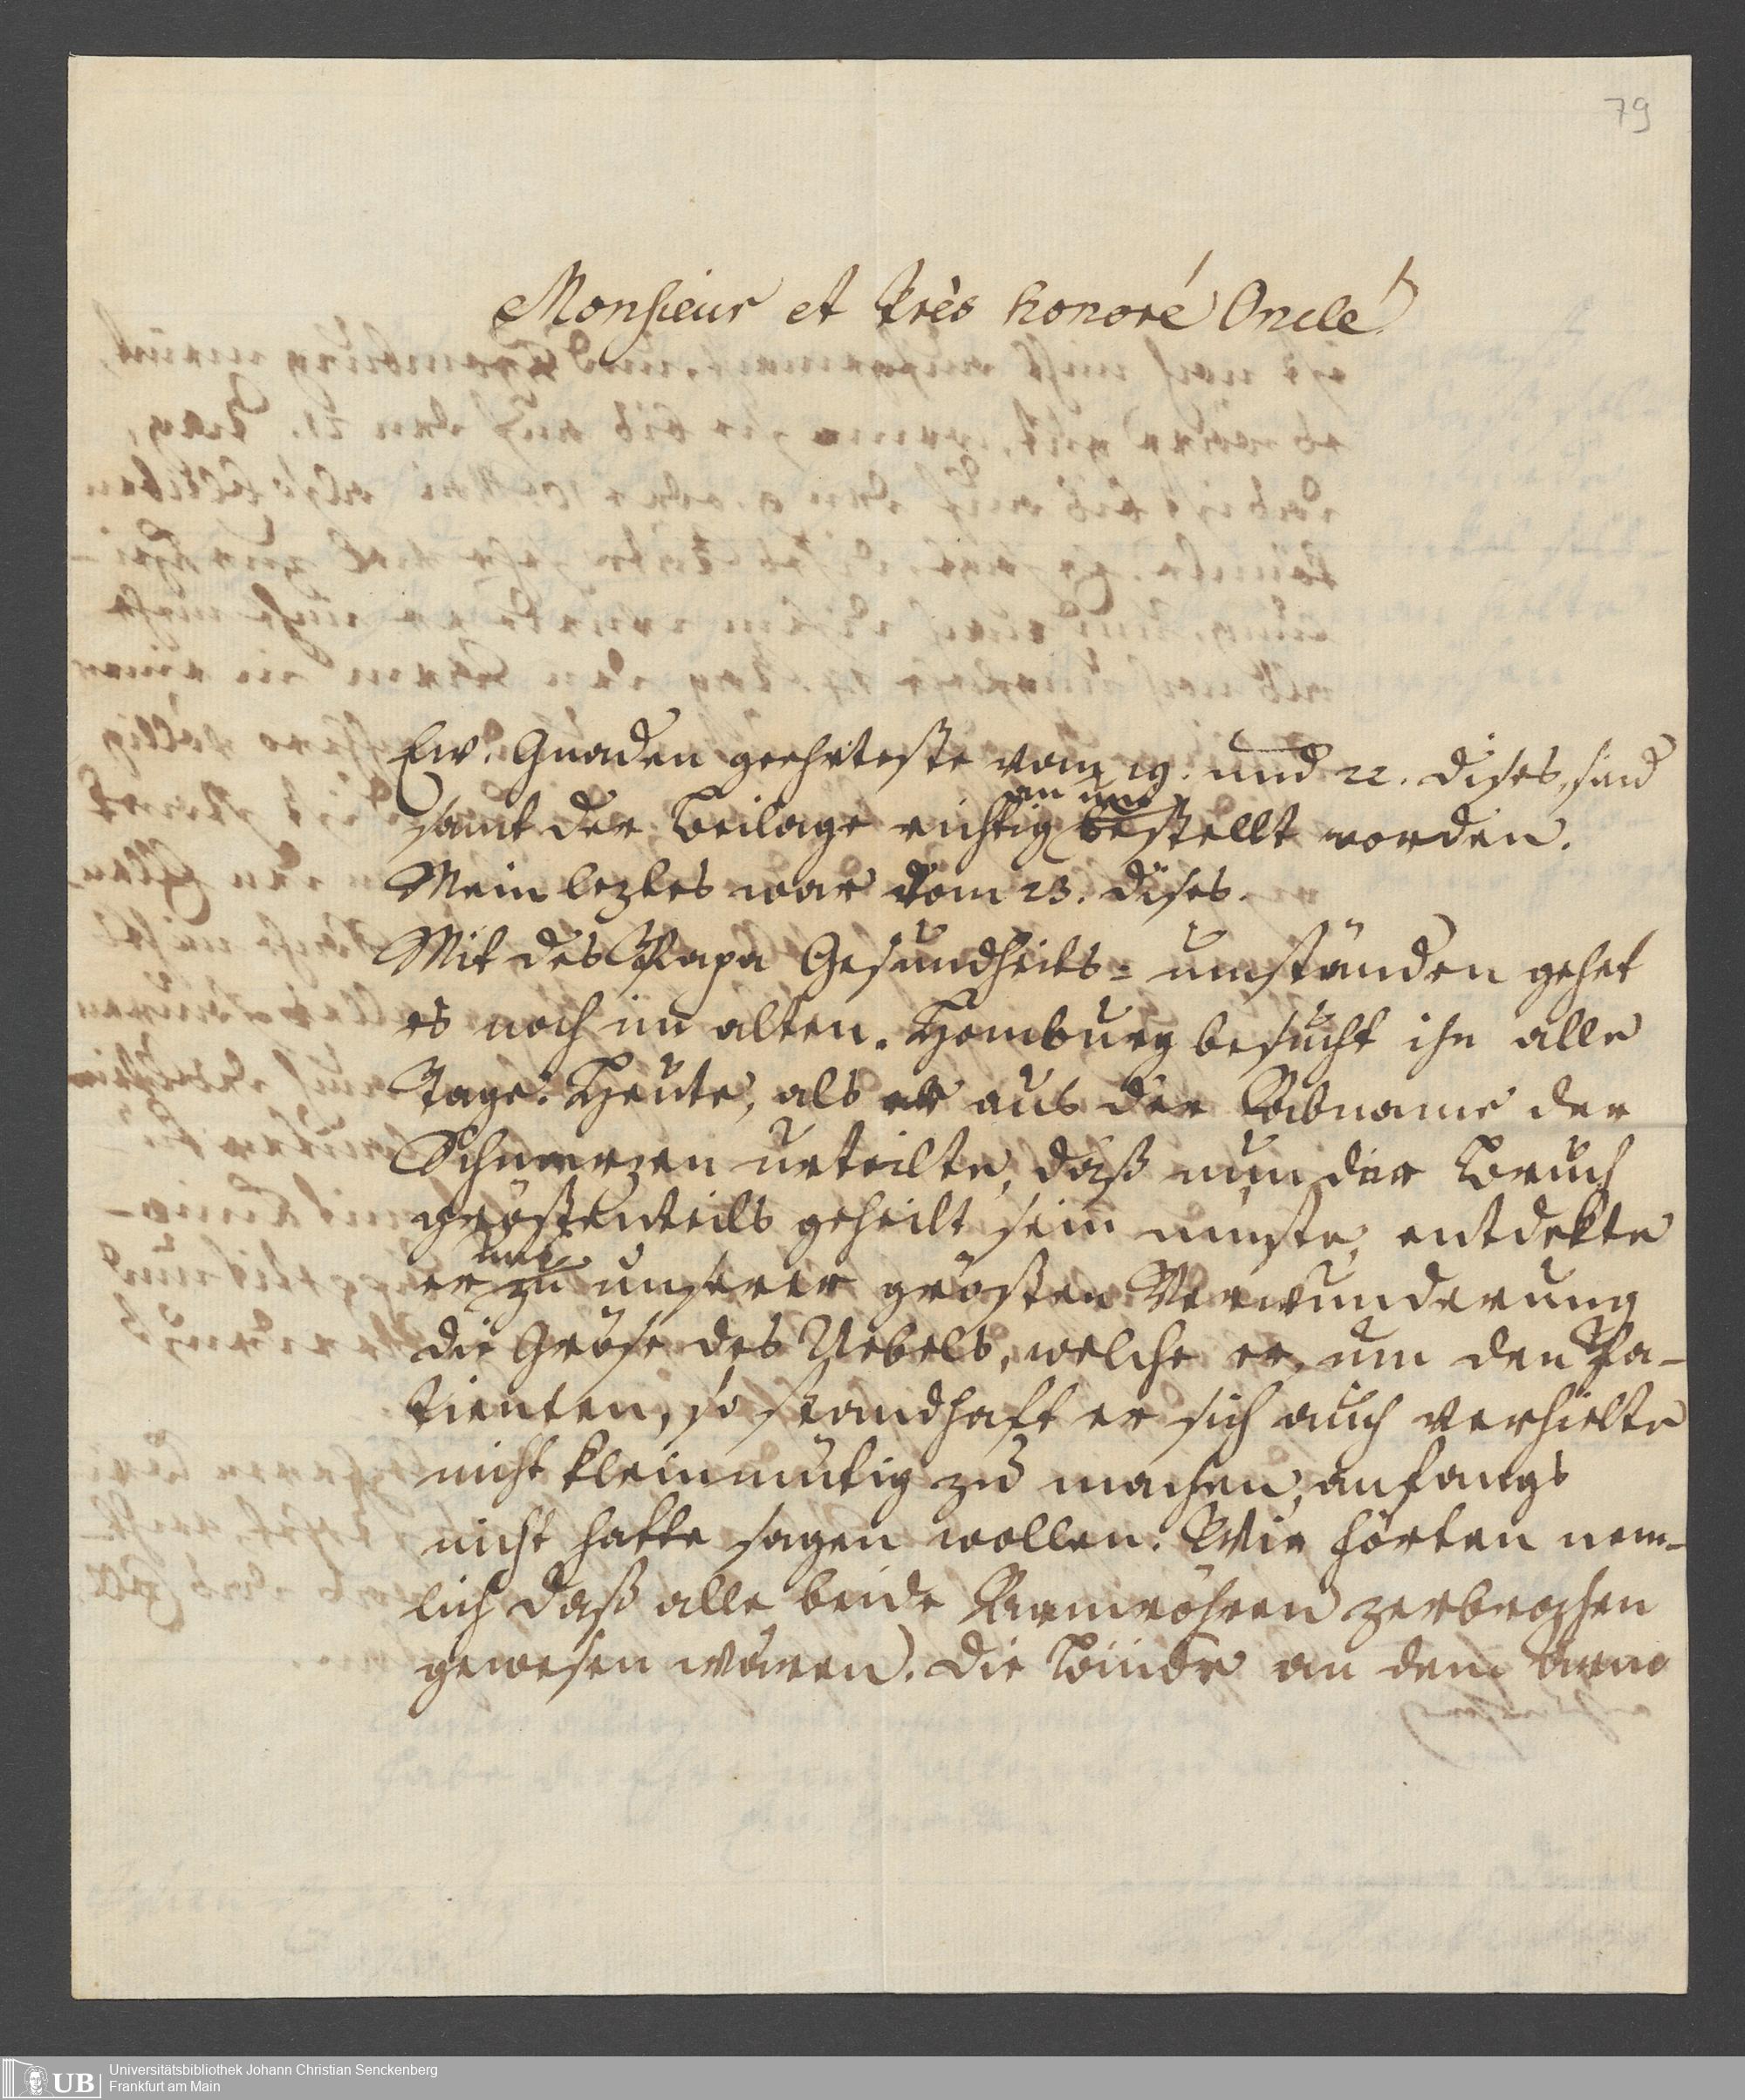 79
Monsieur et très honoré Oncle!
Ew. Gnaden geehrteste vom 19. und 22. dises, sind
an uns
samt der Beilage richtig bestellt worden.
Mein leztes war vom 23. dises.
Mit des Papa Gesundheits- umständen gehet
es noch im alten. Homburg besucht ihn alle
Tage. Heute, als er aus der Abname der
Schmerzen urteilte, daß nun der Bruch
gröstenteils geheilt sein müste, entdekte
uns
er zu unserer grösten Verwunderung
die Gröse des Uebels, welche er, um den Pa-
tienten, so standhaft er sich auch verhielte
nicht kleinmütig zu machen, anfangs
nicht hatte sagen wollen. Wir hörten nem-
lich daß alle beide Armröhren zerbrochen
gewesen wären. Die Binde an dem Arme
Universitätsbibliothek Johann Christian Senckenberg
UB Frankfurt am Main